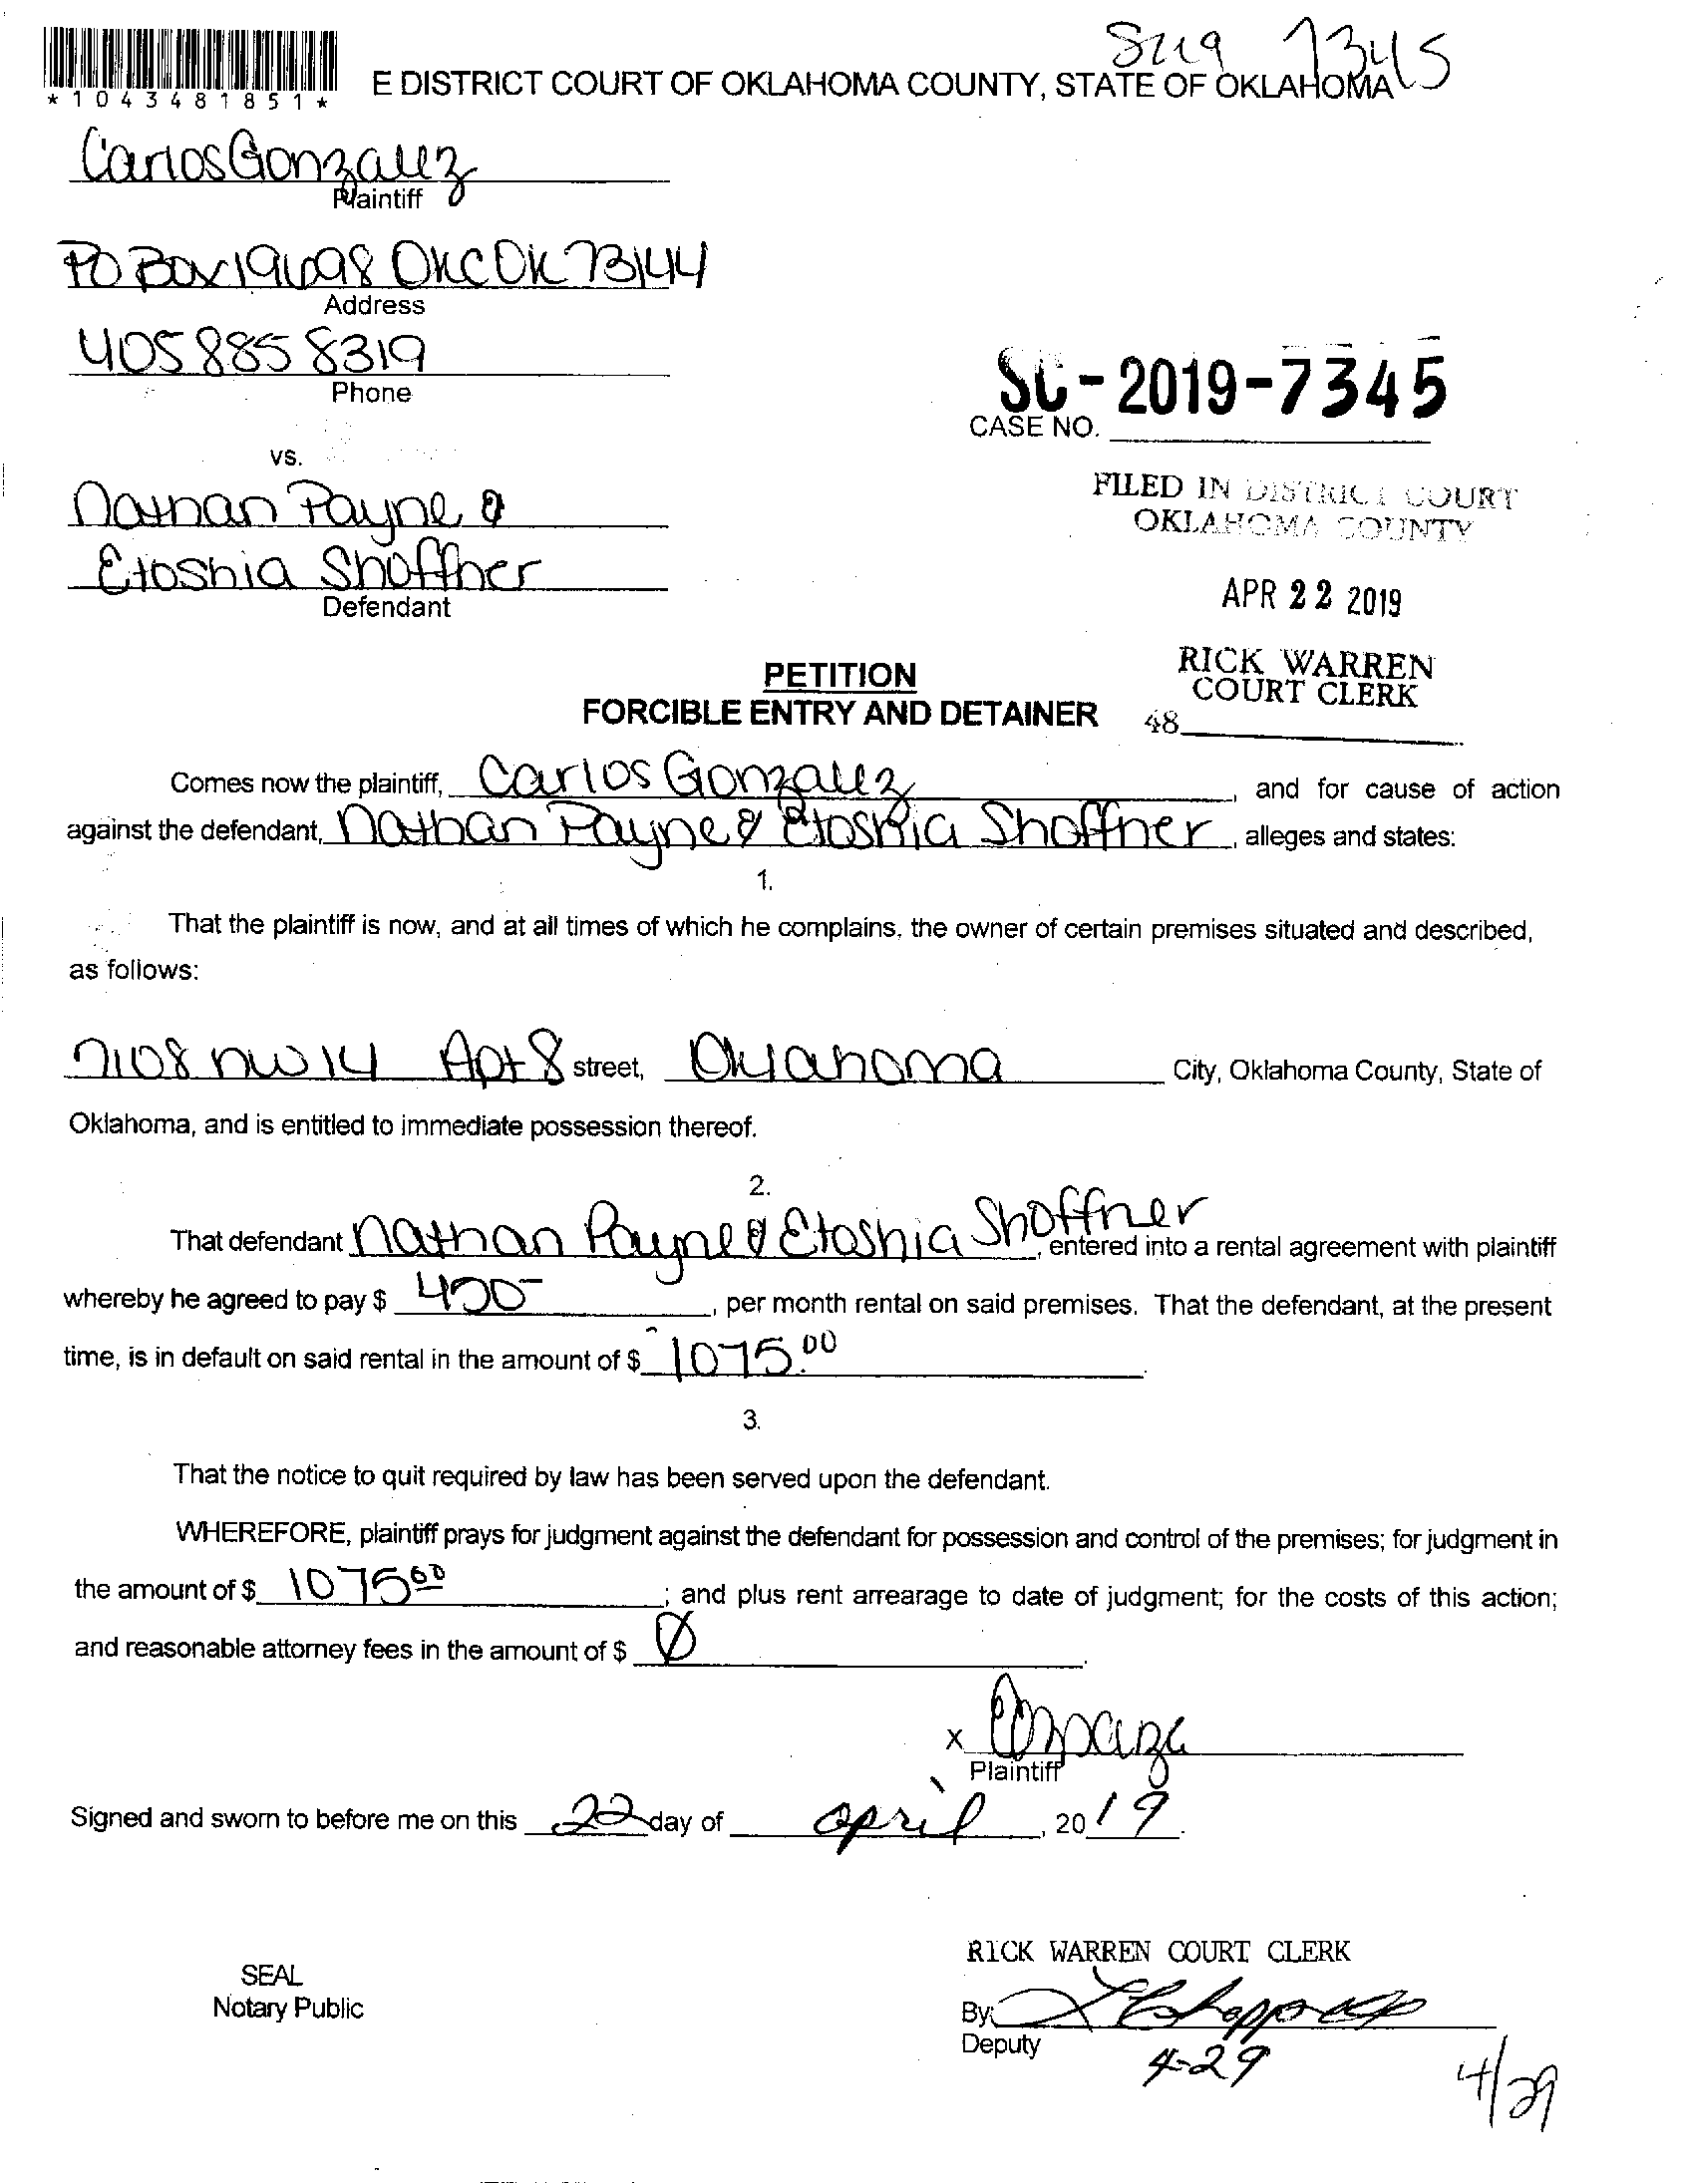 SC19 7345
*1043481851*
E DISTRICT COURT OF OKLAHOMA COUNTY, STATE OF OKLAHOMA
Carlos Gonzalez
Plaintiff
PO Box 19698 OKC OK 73144
Address
405 885 8319
Phone
SC-2019-7345
CASE NO.
vs.
FILED IN DISTRICT COURT
OKLAHOMA COUNTY
Nathan Payne &
Etoshia Shoffner
Defendant
APR 22 2019
RICK WARREN
COURT CLERK
48
PETITION
FORCIBLE ENTRY AND DETAINER
Comes now the plaintiff, Carlos Gonzalez, and for cause of action
against the defendant, Nathan Payne & Etoshia Shoffner, alleges and states:
1.
That the plaintiff is now, and at all times of which he complains, the owner of certain premises situated and described,
as follows:
7108 NW 14 Apt 8 street, Oklahoma City, Oklahoma County, State of
Oklahoma, and is entitled to immediate possession thereof.
2.
That defendant Nathan Payne & Etoshia Shoffner, entered into a rental agreement with plaintiff
whereby he agreed to pay $, per month rental on said premises. That the defendant, at the present
time, is in default on said rental in the amount of $ 1075.00.
3.
That the notice to quit required by law has been served upon the defendant.
WHEREFORE, plaintiff prays for judgment against the defendant for possession and control of the premises; for judgment in
the amount of $ 1075 00; and plus rent arrearage to date of judgment; for the costs of this action;
and reasonable attorney fees in the amount of $ Ø.
X
Plaintiff
Signed and sworn to before me on this 22 day of april, 2019.
RICK WARREN COURT CLERK
SEAL
Notary Public
By:
Deputy
4-29
4/29